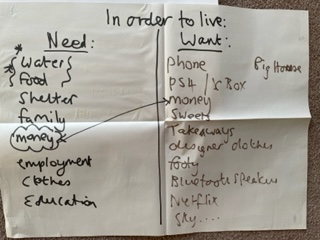 In order to live:
Need:
* Water
* Food
Shelter
family
money
employment
Clothes
Education
Want:
phone
Big House
PS4 / X Box
money
Sweets
Takeaways
designer clothes
footy
Bluetooth speaker
Netflix
Sky....